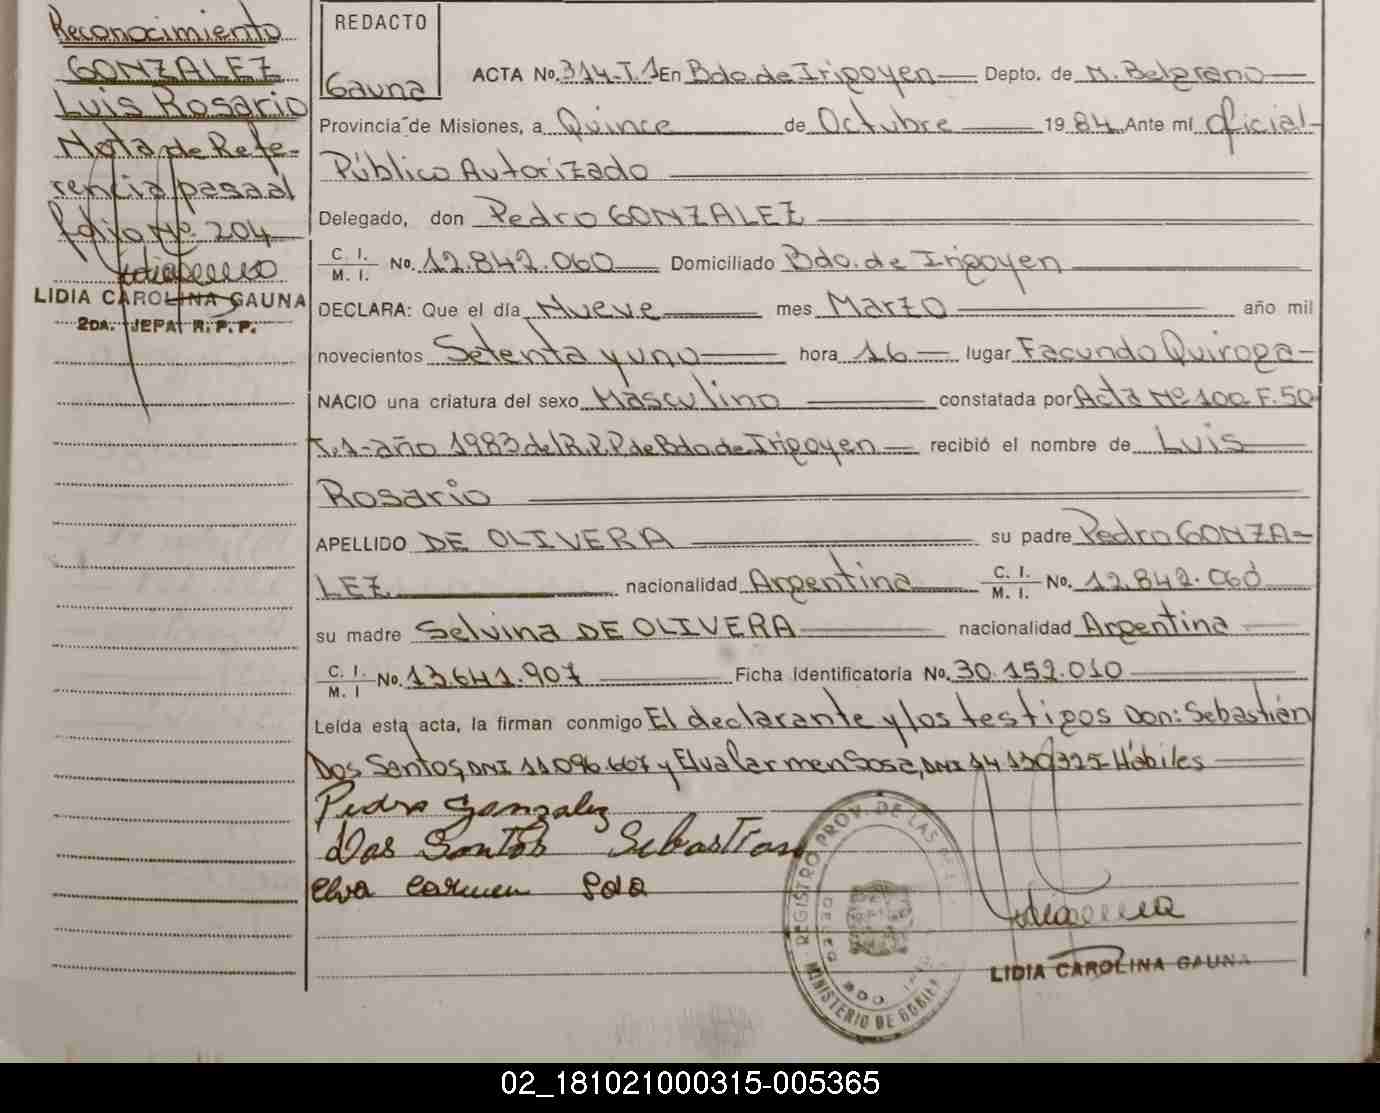 Reconocimiento
GONZALEZ
Luis Rosario
Nota de Refe-
rencia pasa al
folio Nº 204
LIDIA CAROLINA GAUNA
2DA. JEFA R.P.P.
REDACTO
Gauna
ACTA No. 314-T.1 En Bdo. de Irigoyen Depto. de M. Belgrano
Provincia de Misiones, a Quince de Octubre 1984 Ante mí Oficial
Público Autorizado
Delegado, don Pedro GONZALEZ
C. I.
M. I. No. 12.842.060 Domiciliado Bdo. de Irigoyen
DECLARA: Que el día Nueve mes Marzo año mil
novecientos Setenta y uno hora 16 lugar Facundo Quiroga
NACIO una criatura del sexo Masculino constatada por Acta Nº 100 F. 50
T.1- año 1983 del R.P.P. de Bdo de Irigoyen recibió el nombre de Luis
Rosario
APELLIDO DE OLIVERA su padre Pedro GONZA-
LEZ nacionalidad Argentina C. I. M. I. No. 12.842.060
su madre Selvina DE OLIVERA nacionalidad Argentina
C. I. M. I No. 13.641.907 Ficha identificatoria No. 30.152.010
Leída esta acta, la firman conmigo El declarante y los testigos Don: Sebastián
Dos Santos, DNI 11.096.667 y Elva Carmen Sosa, DNI 14.130.325 Hábiles
Pedro Gonzalez
Dos Santos Sebastian
Elva Carmen Sosa
REGISTRO PROV. DE LAS
MINISTERIO DE GOBIE
LIDIA CAROLINA GAUNA
02_181021000315-005365